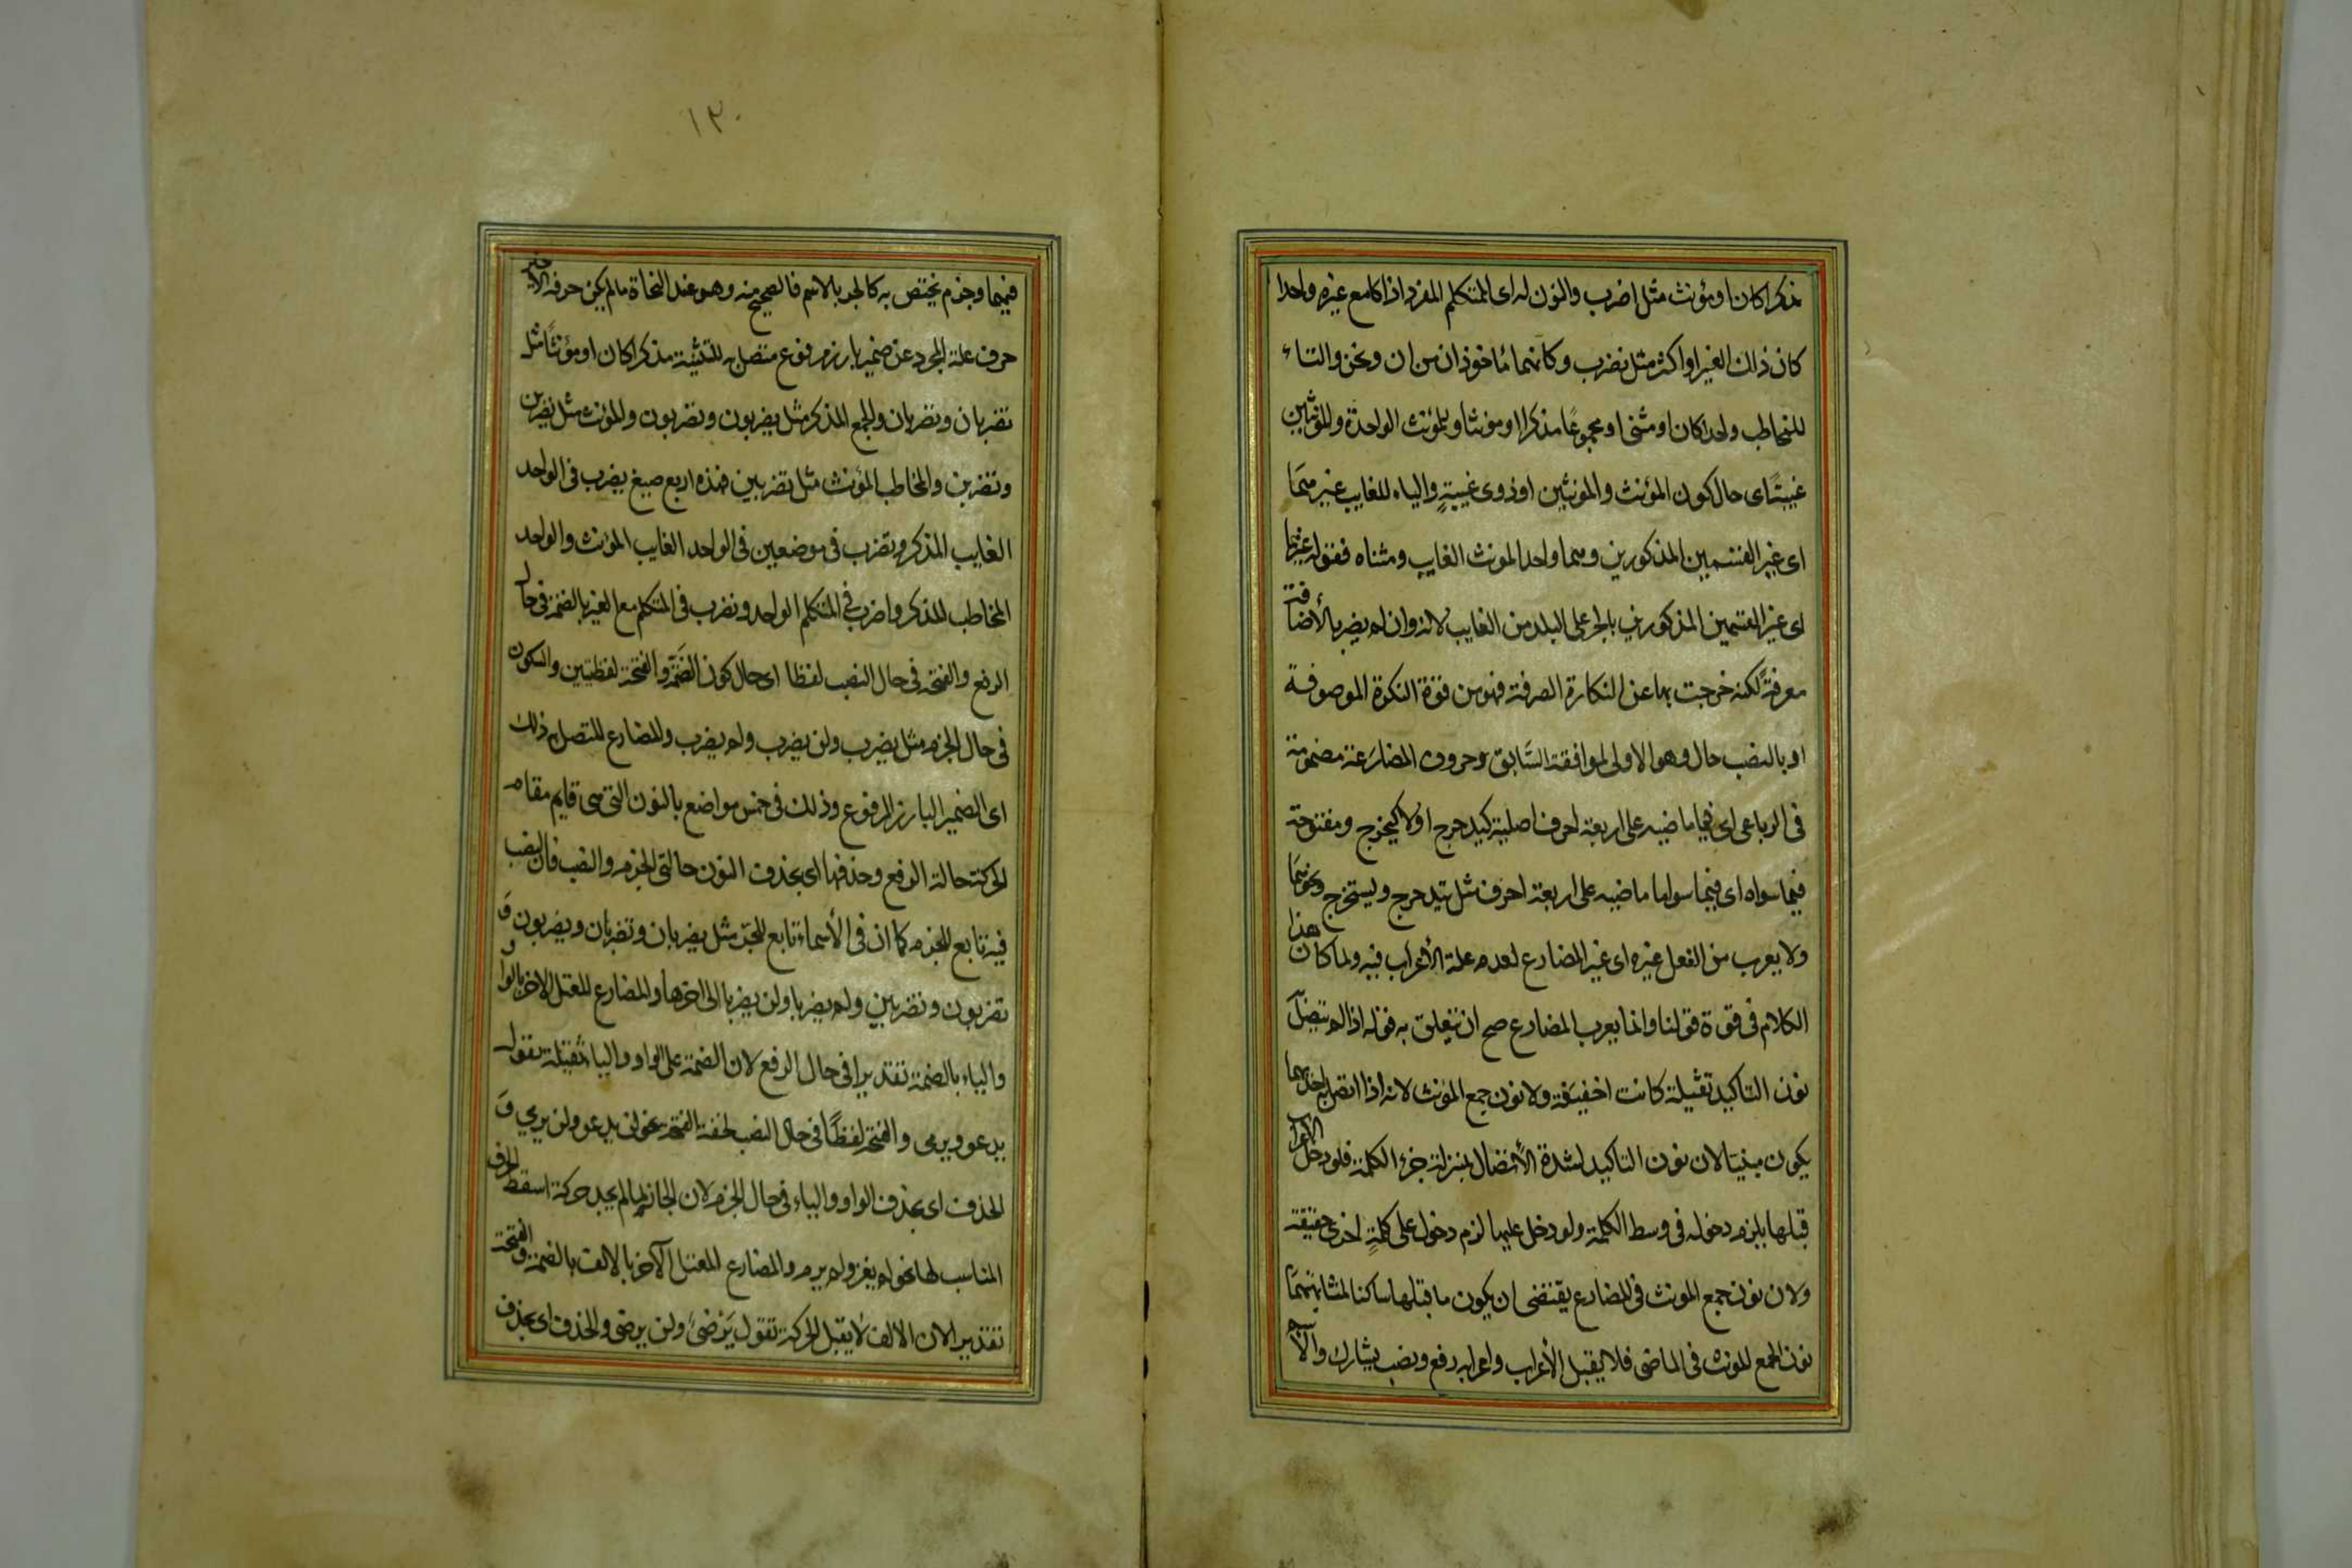 مذكرا كان او مؤنث مثل اضرب والنون له اى المتكلم المفرد اذا كا مع غيره واحدا
كان ذلك الغير او اكثر مثل نضرب وكانهما مأخوذان من ان ونحن والتاء
للمخاطب واحدا كان او مثنى او مجموعًا مذكرا او مونثا وللمؤنث الواحدة وللمؤنثين
غيبتًا اى حال كون المؤنث والمونثين او ذوى غيبةٍ والياء للغايب غيرهمَا
اى غير القسمين المذكورين وهما واحد المونث الغايب ومثناه فقوله غيرهما
اى غير القسمين المذكورين بالجر على البدل من الغايب لانه وان لم يصر بالأضافة
معرفةً لكنه خرجت بها عن النكارة الصرفة فهو من قوة النكرة الموصوفة
او بالنصب حال وهو الاولى لموافقة السَّابق وحروف المضارَعة مضمومة
فى الرباعى اى فيما ماضيه على اربعة احرف اصلية كيدحرج اولا كيخرج ومفتوحة
فيما سواه اى فيما سوا ما ماضيه على اربعة احرف مثل يتدحرج ويستخرج ونحوهمَا
ولا يعرب من الفعل غيره اى غير المضارع لعدم علة الأعراب فيه ولما كان هذا
الكلام فى قوة قولنا وانما يعرب المضارع صح ان تتعلق به قوله اذا لم يتصل
نون التاكيد ثقيلة كانت اخفيفة ولا نون جمع المؤنث لانه اذا اتصل به احديهما
يكون مبنيا لان نون التاكيد لشدة الأتصال بمنزلة جزء الكلمة فلو دخل الاعراب
قبلها يلزم دخوله فى وسط الكلمة ولو دخل عليها لزم دخول على كلمةٍ اخرى حقيقة
ولان نون جمع المونث فى المضارع يقتضى ان يكون ما قبلها ساكنا لمشابهتهَا
نون الجمع المونث فى الماضى فلا يقبل الأعراب واعرابه رفع ونصب يشارك والا
١٣٠
فيهما وجزم يختص به كالجر بالاسم فالصحيح منه وهو عند النحاة مالم يكن حرفه الاخير
حرف علة المجرد عن ضمير بارز مرفوع متصل به للتثنية مذكرا كان او مؤنثًا مثل
تضربان وتضربان والجمع المذكر مثل يضربون وتضربون والمؤنث مثل يضربن
وتضربن والمخاطب المؤنث مثل تضربين فهذه اربع صيغ يضرب فى الواحد
الغايب المذكر وتضرب فى موضعين فى الواحد الغايب المؤنث والواحد
المخاطب المذكر واضرب فى المتكلم الواحد ونضرب فى المتكلم مع الغير بالضمة فى حال
الرفع والفتحة فى حال النصب لفظا اى حال كون الضمَّة والفتحة لفظيتين والسكون
فى حال الجزم مثل يضرب ولن يضرب ولم يضرب والمضارع المتصل به ذلك
اى الضمير البارز المرفوع وذلك فى خمس مواضع بالنون التى هى قايم مقام
الحركة حالة الرفع وحذفها اى بحذف النون حالتى الجزم والنصب فان النصب
فيه تابع للجزم كما ان فى الأسماء تابع للجر مثل يضربان وتضربان ويضربون وَ
تضربون وتضربين ولم يضربا ولن يضربا الى اخرها والمضارع المعتل الاخر بالواو
والياء بالضمة تقديرا فى حال الرفع لان الضمة على الواو والياء ثقيلة تقول
يدعو ويرمى والفتحة لفظًا فى حال النصب لخفة الفتحة نحو لن يدعو ولن يرمي وَ
الحذف اى بحذف الواو والياء فى حال الجزم لان الجازم لما لم يجد حركة اسقط الحرف
المناسب لها نحو لم يغز ولم يرم والمضارع المعتل الآخر بالالف بالضمة والفتحة
تقديرا لان الالف لا يقبل الحركة تقول يَرْضىٰ ولن يرضى والحذف اى بحذف